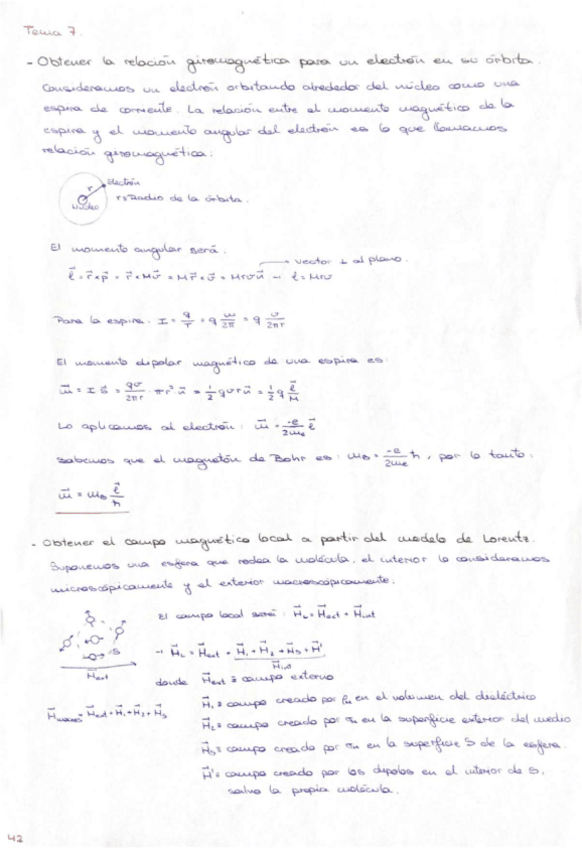 Tema 7.
- Obtener la relación giromagnética para un electrón en su órbita.
Consideramos un electrón orbitando alrededor del núcleo como una
espira de corriente. La relación entre el momento magnético de la
espira y el momento angular del electrón es lo que llamamos
relación giromagnética:
Electrón
r
Núcleo
r≡Radio de la órbita.
El momento angular será:
vector ⊥ al plano.
ℓ⃗ = r⃗ × p⃗ = r⃗ × Mv⃗ = M r⃗ × v⃗ = Mrv u⃗ → ℓ = Mrv
Para la espira: I = q/T = q ω/2π = q v/2πr
El momento dipolar magnético de una espira es:
m⃗ = I S⃗ = qv/2πr · πr² u⃗ = 1/2 q v r u⃗ = 1/2 q ℓ⃗/M
Lo aplicamos al electrón: m⃗ = -e/2me ℓ⃗
Sabemos que el magnetón de Bohr es: mB = -e/2me ħ, por lo tanto:
m⃗ = mB ℓ⃗/ħ
- Obtener el campo magnético local a partir del modelo de Lorentz.
Suponemos una esfera que rodea la molécula, el interior lo consideramos
microscópicamente y el exterior macroscópicamente:
El campo local será: H⃗L = H⃗ext + H⃗int
S
→ H⃗L = H⃗ext + H⃗1 + H⃗2 + H⃗S + H⃗'
H⃗int
H⃗ext
donde H⃗ext ≡ campo externo
H⃗macro = H⃗ext + H⃗1 + H⃗2 + H⃗S
H⃗1 ≡ campo creado por ρm en el volumen del dieléctrico
H⃗2 ≡ campo creado por σm en la superficie exterior del medio
H⃗S ≡ campo creado por σm en la superficie S de la esfera.
H⃗' ≡ campo creado por los dipolos en el interior de S,
salvo la propia molécula.
42